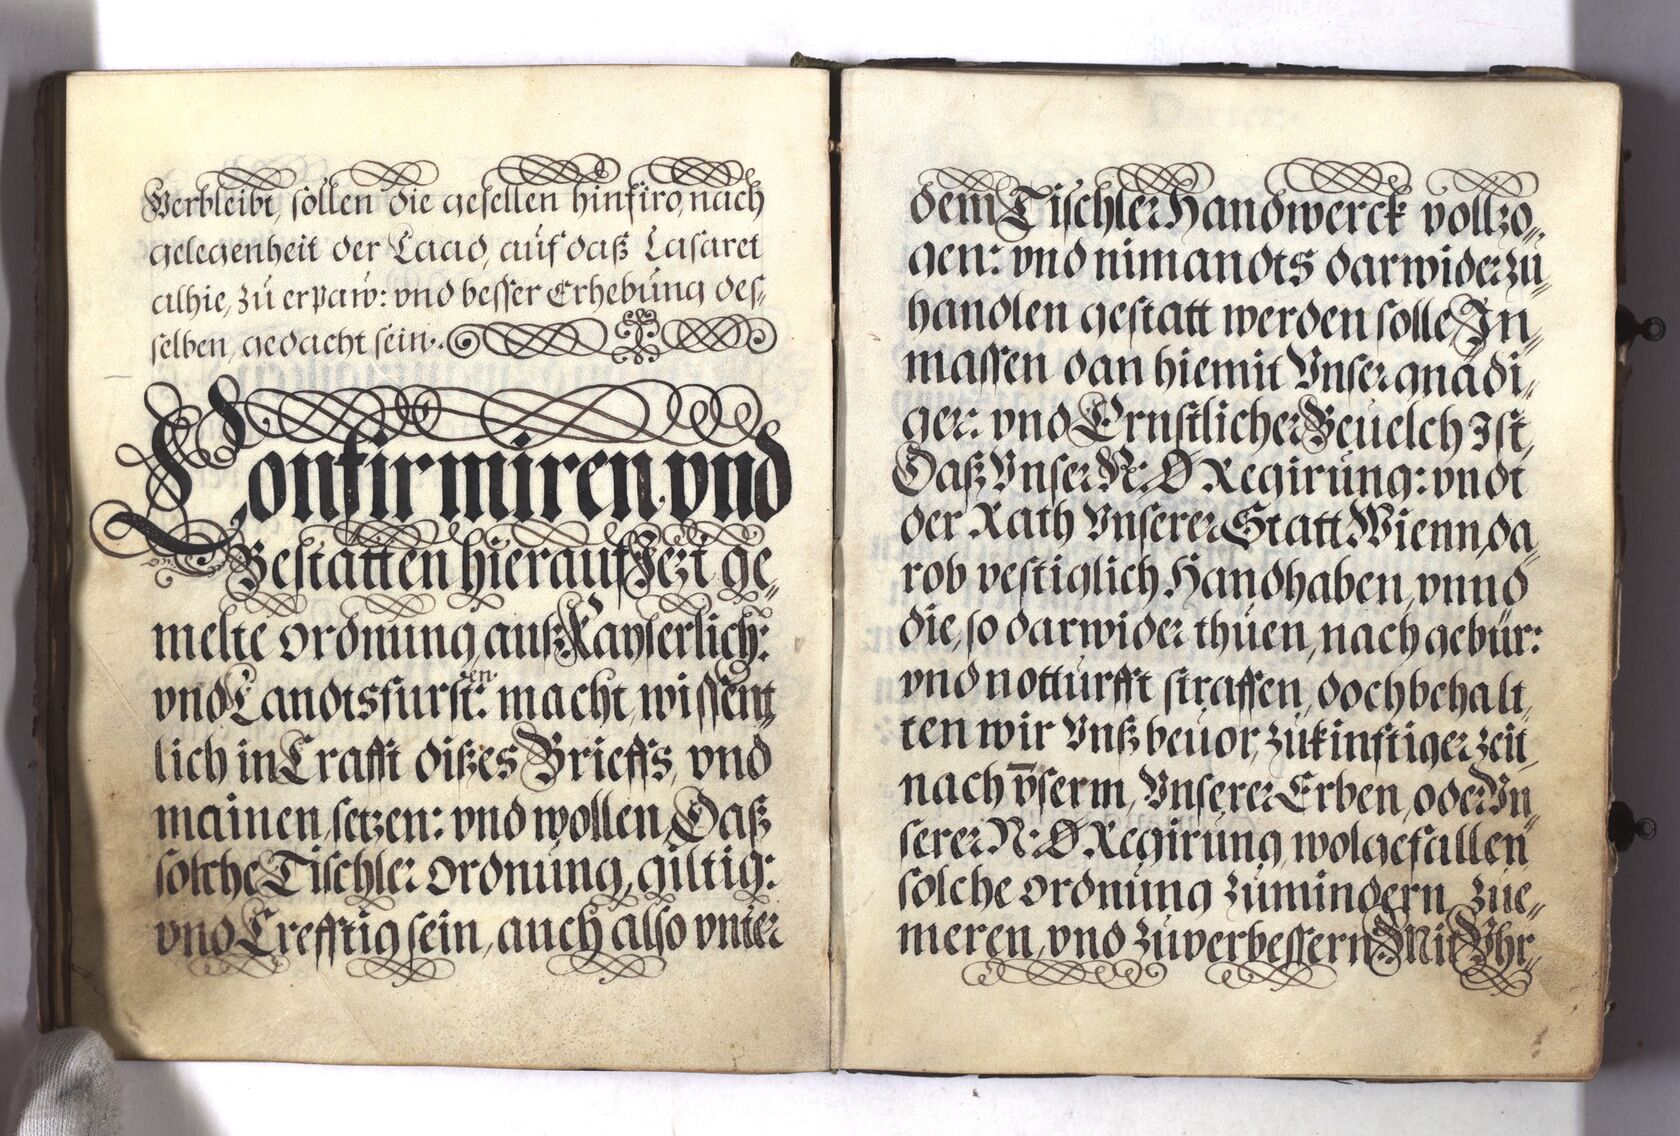 Verbleibt, sollen die gesellen hinfüro, nach
gelegenheit der Laad, auf daß Lasaret
alhie, zü erpaẃ: vnd besser Erhebüng des„
selben, gedacht sein.
Confirmiren vnd
Gestatten hierauf Jezt ge„
melte ordnung, auß Kayserlich:
vnd Landtsfurst:en macht, wissent„
lich in Crafft dißes Brieffs, vnd
mainen, setzen: vnd wollen, Daß
solche Tischler ordnüng, giltig:
vnd Crefftig sein, auch also vnter
dem Tischler Handwerck vollzo„
gen: vnd nimandts darwider zü„
handlen gestatt werden solle, In„
massen dan hiemit Vnser gnädi„
ger: vnd Ernstlicher Beuelch Ist,
Daß Vnser N: Ö Regirüng: vndt
der Rath Vnserer Statt Wienn, da„
rob vestiglich Handhaben, vnnd
die, so darwider thüen, nach gebür:
vnd notturfft straffen, doch behalt„
ten wir Vnß beüor, zükinftiger zeit,
nach v̄serm, Vnserer Erben, oder Vn„
serer N: Ö Regirüng, wolgefallen
solche ordnüng zümindern, züe„
meren, vnd züverbessern. Mit Vhr„